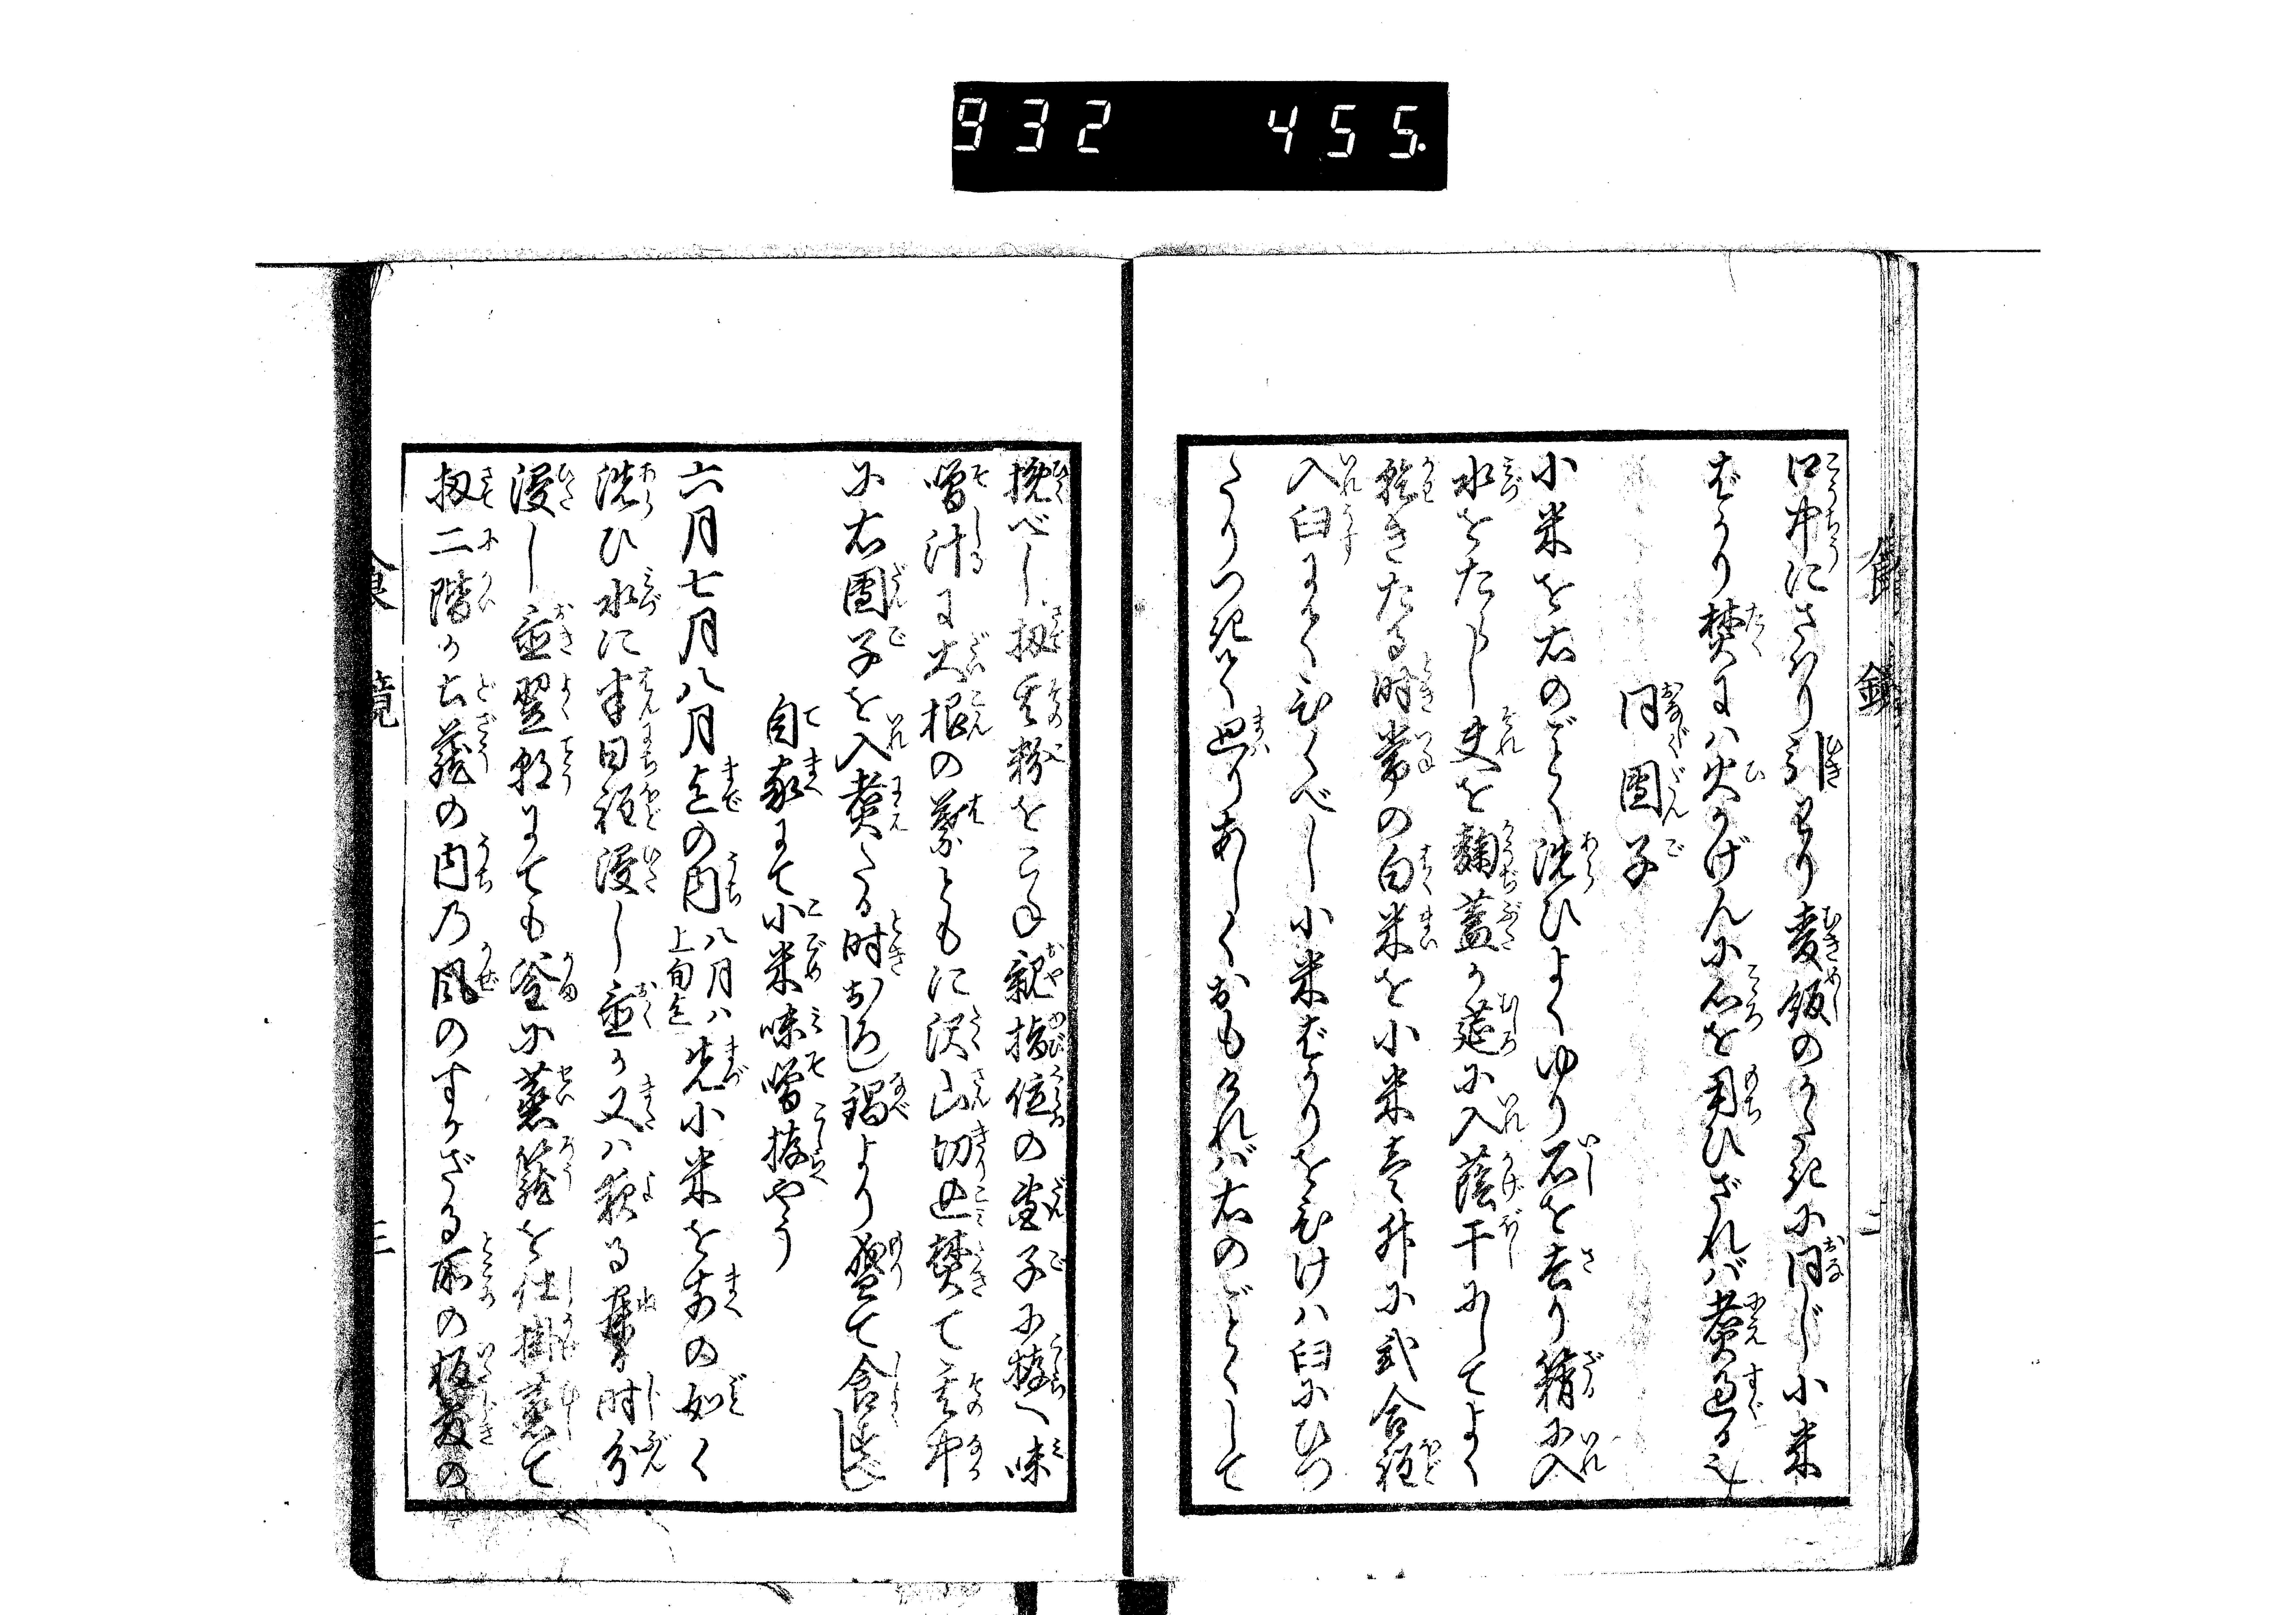 932 455.
口中にさはり引わり麦飯のうまきに同じ小米
ばかり焚にハ火かげんに心を用ひざれバ煮過る也
同團子
小米を右のごとく洗ひよくゆり石を去り籍に入
水をたらし夫を麹蓋か莚に入蔭干にしてよく
乾きたる時常の白米を小米壱升に弐合程
入臼にてひくべし小米ばかりをひけハ臼にひつ
たりつきて廻りあしくおもければ右のごとくして
挽べし扨其粉をこね親指位の團子に拵へ味
噌汁に大根の葉ともに沢山切込焚て其中
に右團子を入煮たる時おろし鍋より盛て食すべし
自家にて小米味噌拵やう
六月七月八月迄の内八月ハ上旬迄先小米を前の如く
洗ひ水に半日程浸し置か又ハ夜る寐る時分
浸し置翌朝にても釜に蒸籠を仕掛蒸て
扨二階か土蔵の内乃風のすかざる所の板敷の
食鏡
三